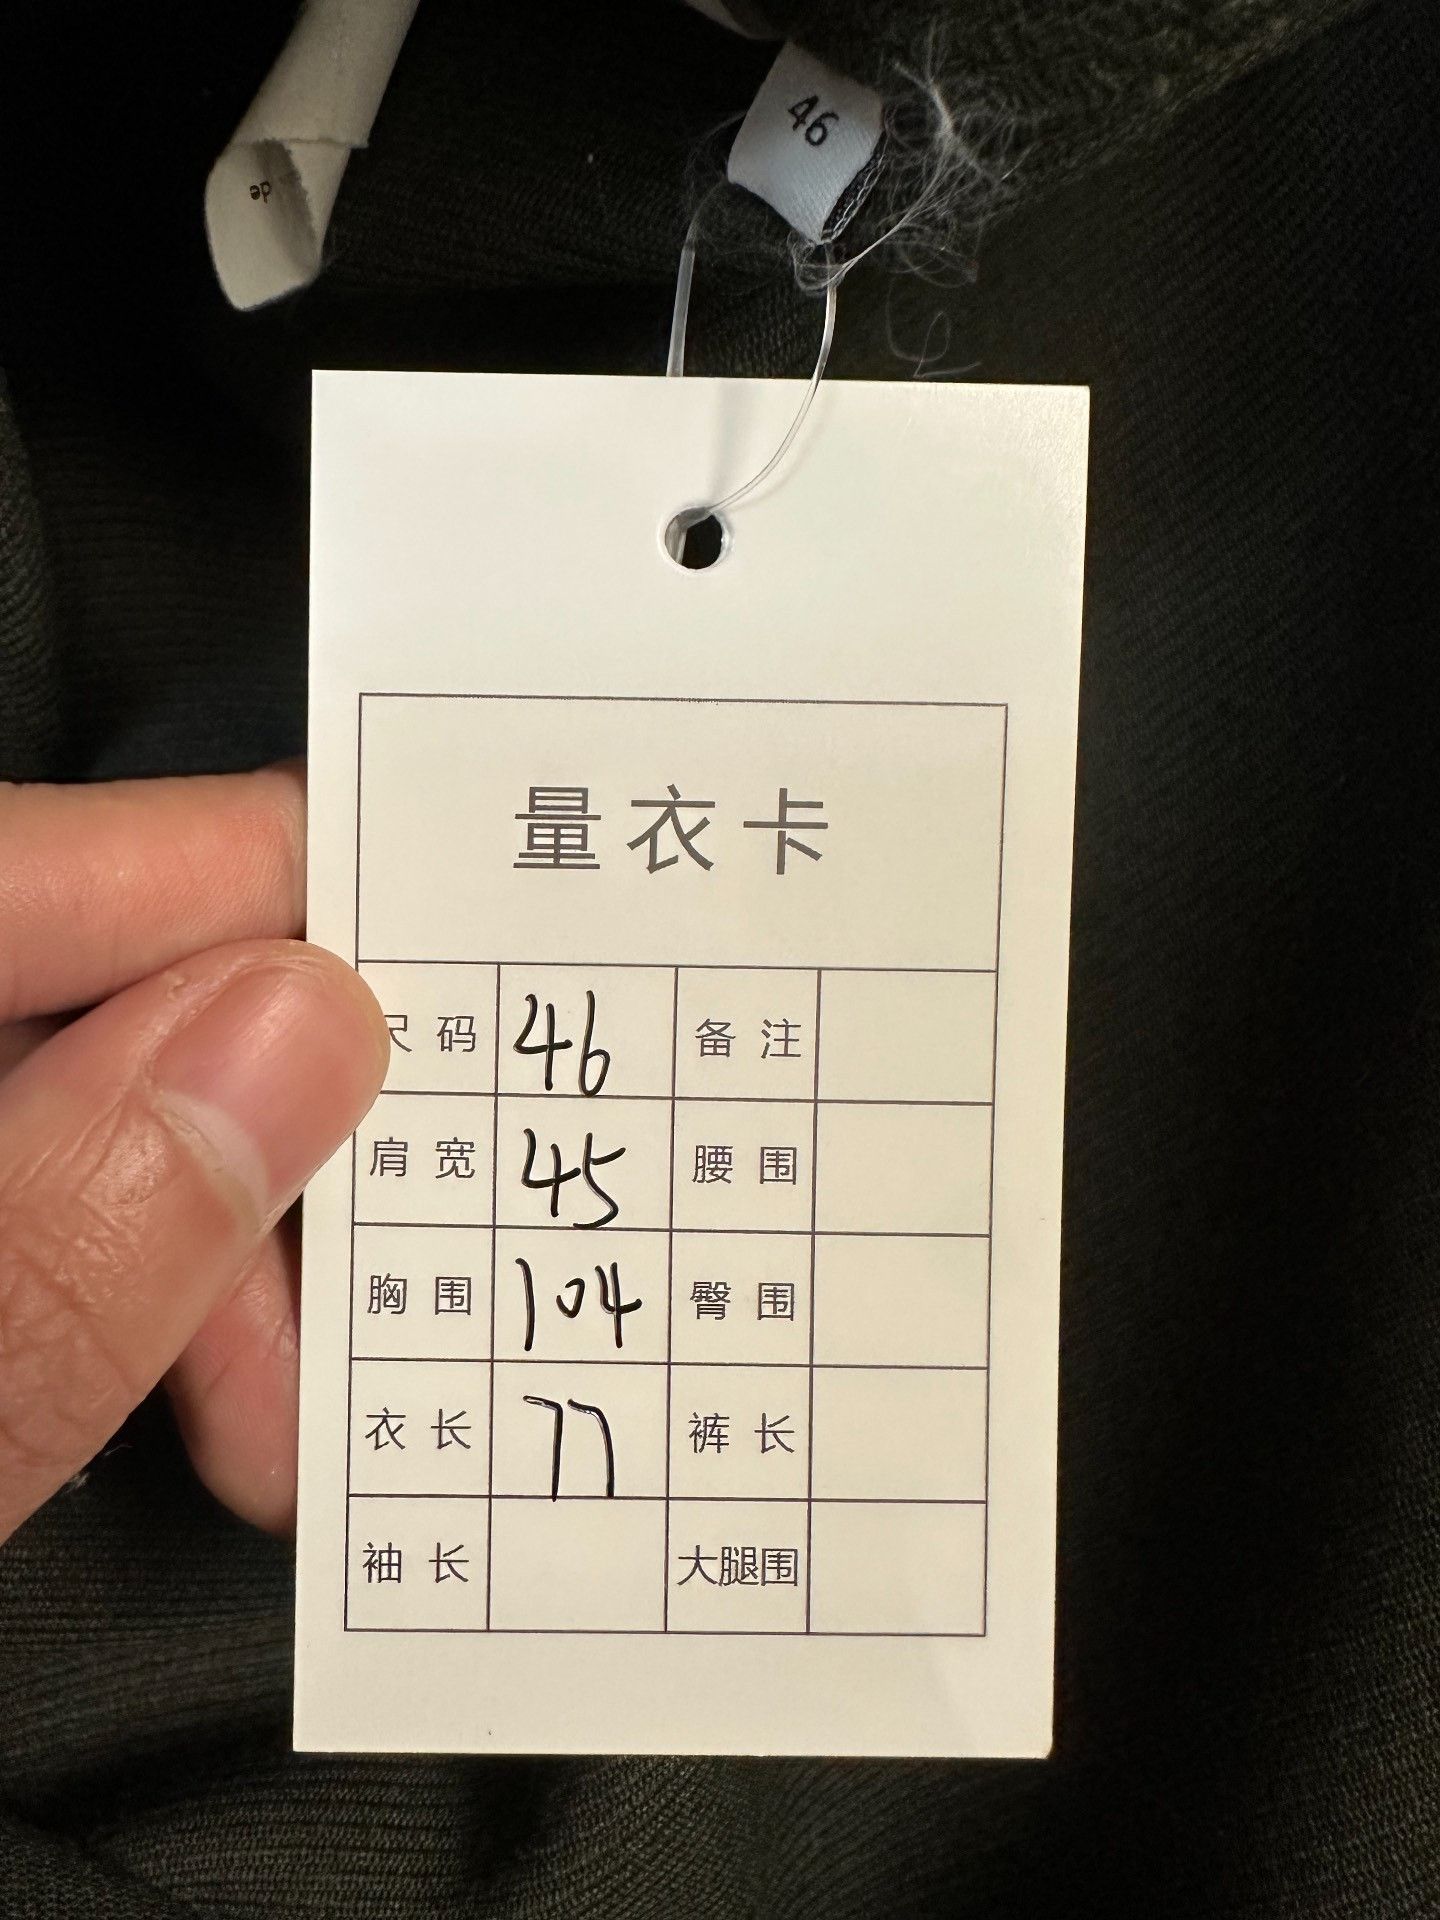 46
de
量衣卡
尺码 46 备注
肩宽 45 腰围
胸围 104 臀围
衣长 77 裤长
袖长 大腿围